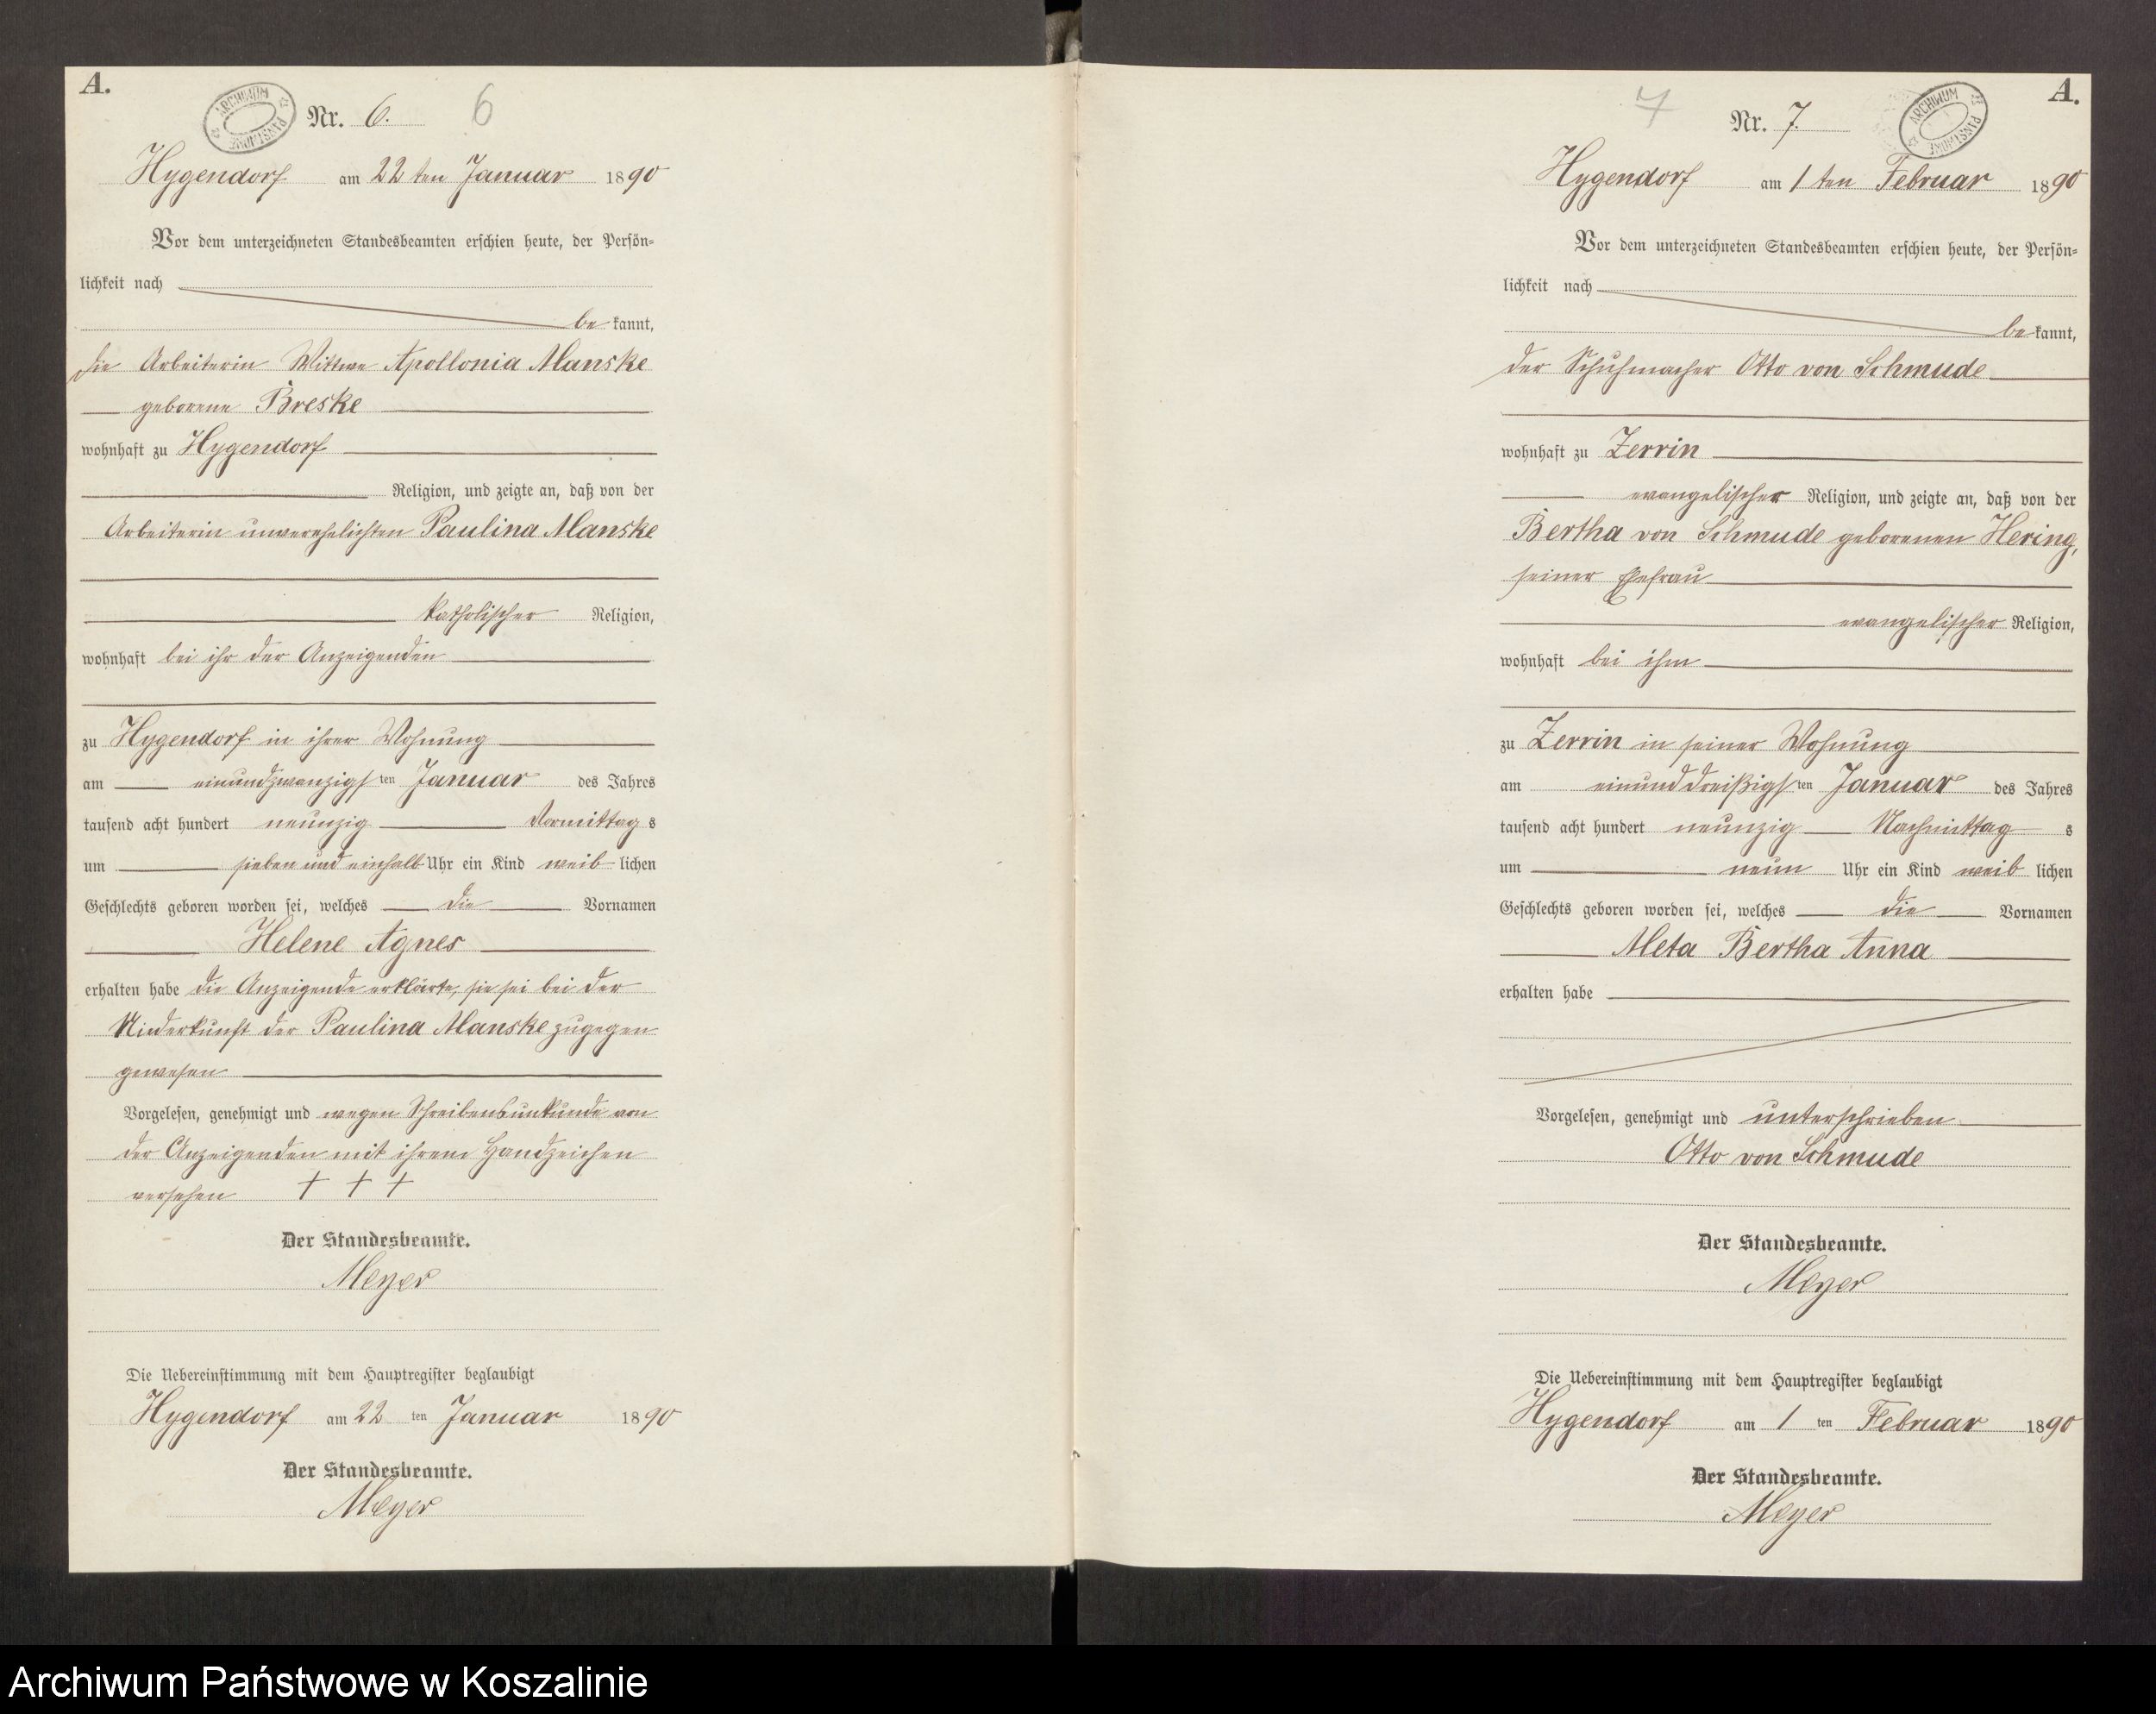 A.
ARCHIWUM PAŃSTWOWE
Nr. 6. 6
Hygendorf am 22 ten Januar 1890
Vor dem unterzeichneten Standesbeamten erschien heute, der Persön=
lichkeit nach
be kannt,
die Arbeiterin Wittwe Apollonia Manske
geborene Breske
wohnhaft zu Hygendorf
Religion, und zeigte an, daß von der
Arbeiterin unverehelichten Paulina Manske
katholischer Religion,
wohnhaft bei ihr der Anzeigenden
zu Hygendorf in ihrer Wohnung
am einundzwanzigs ten Januar des Jahres
tausend acht hundert neunzig Vormittag s
um sieben und einhalb Uhr ein Kind weib lichen
Geschlechts geboren worden sei, welches die Vornamen
Helene Agnes
erhalten habe die Anzeigende erklärte, sie sei bei der
Niederkunft der Paulina Manske zugegen
gewesen
Vorgelesen, genehmigt und wegen Schreibensunkunde von
der Anzeigenden mit ihrem Handzeichen
versehen + + +
Der Standesbeamte.
Meyer
Die Uebereinstimmung mit dem Hauptregister beglaubigt
Hygendorf am 22 ten Januar 1890
Der Standesbeamte.
Meyer
A.
ARCHIWUM PAŃSTWOWE
7 Nr. 7.
Hygendorf am 1 ten Februar 1890
Vor dem unterzeichneten Standesbeamten erschien heute, der Persön=
lichkeit nach
be kannt,
der Schuhmacher Otto von Schmude
wohnhaft zu Zerrin
evangelischer Religion, und zeigte an, daß von der
Bertha von Schmude geborenen Hering,
seiner Ehefrau
evangelischer Religion,
wohnhaft bei ihm
zu Zerrin in seiner Wohnung
am einunddreißigs ten Januar des Jahres
tausend acht hundert neunzig Nachmittag s
um neun Uhr ein Kind weib lichen
Geschlechts geboren worden sei, welches die Vornamen
Meta Bertha Anna
erhalten habe
Vorgelesen, genehmigt und unterschrieben
Otto von Schmude
Der Standesbeamte.
Meyer
Die Uebereinstimmung mit dem Hauptregister beglaubigt
Hygendorf am 1 ten Februar 1890
Der Standesbeamte.
Meyer
Archiwum Państwowe w Koszalinie